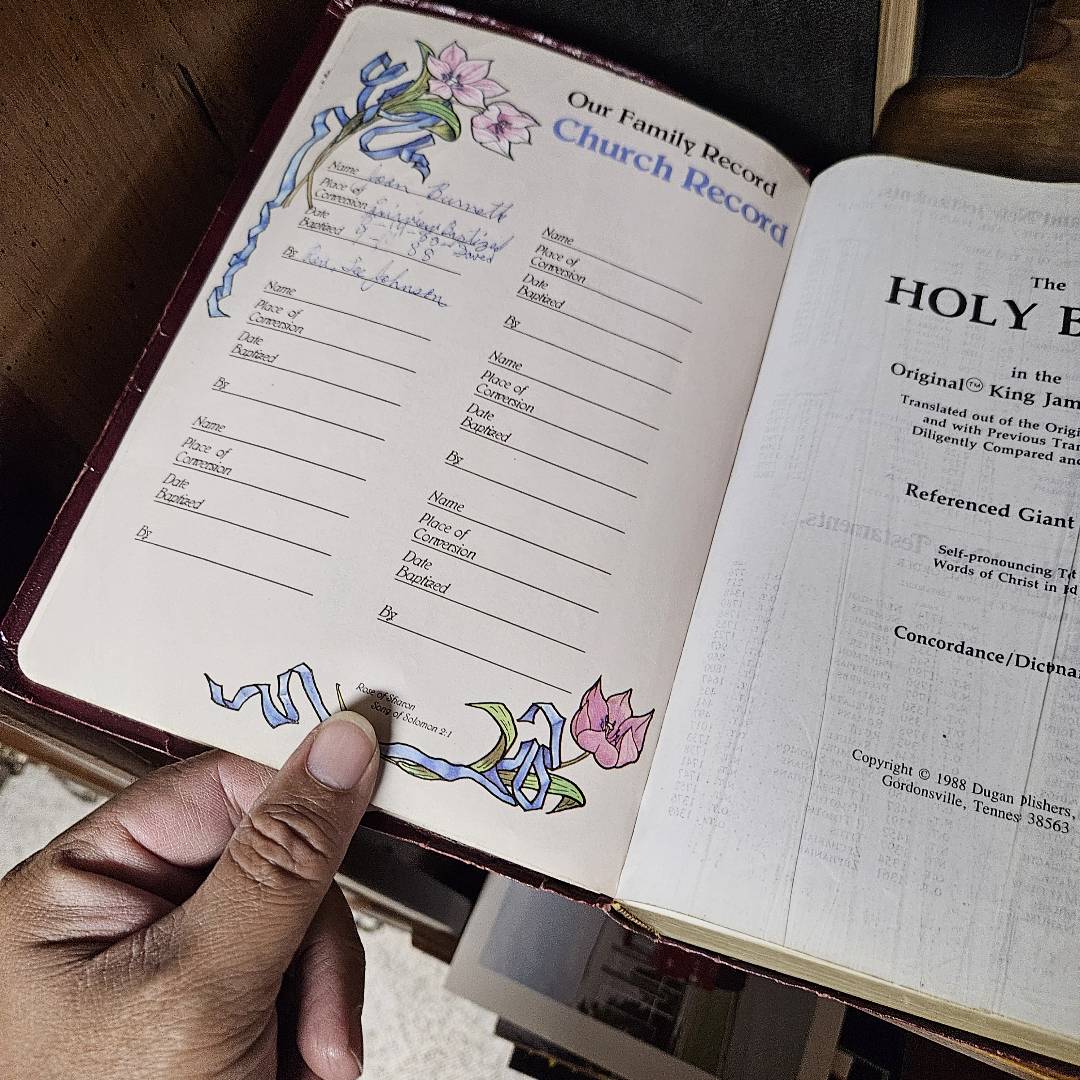 Our Family Record
Church Record
Name Joan Burnett
Place of
Conversion Fairview Baptized
Date
Baptized 9 88 Saved
By Rev. Joe Johnson
Name
Place of
Conversion
Date
Baptized
By
Name
Place of
Conversion
Date
Baptized
By
Name
Place of
Conversion
Date
Baptized
By
Name
Place of
Conversion
Date
Baptized
By
Name
Place of
Conversion
Date
Baptized
By
Rose of Sharon
Song of Solomon 2:1
The
HOLY B
in the
Original™ King Jam
Translated out of the Origi
and with Previous Tran
Diligently Compared and
Referenced Giant
Self-pronouncing T
Words of Christ in
Concordance/Dict
Copyright © 1988 Dugan
Gordonsville, Tennes 38563